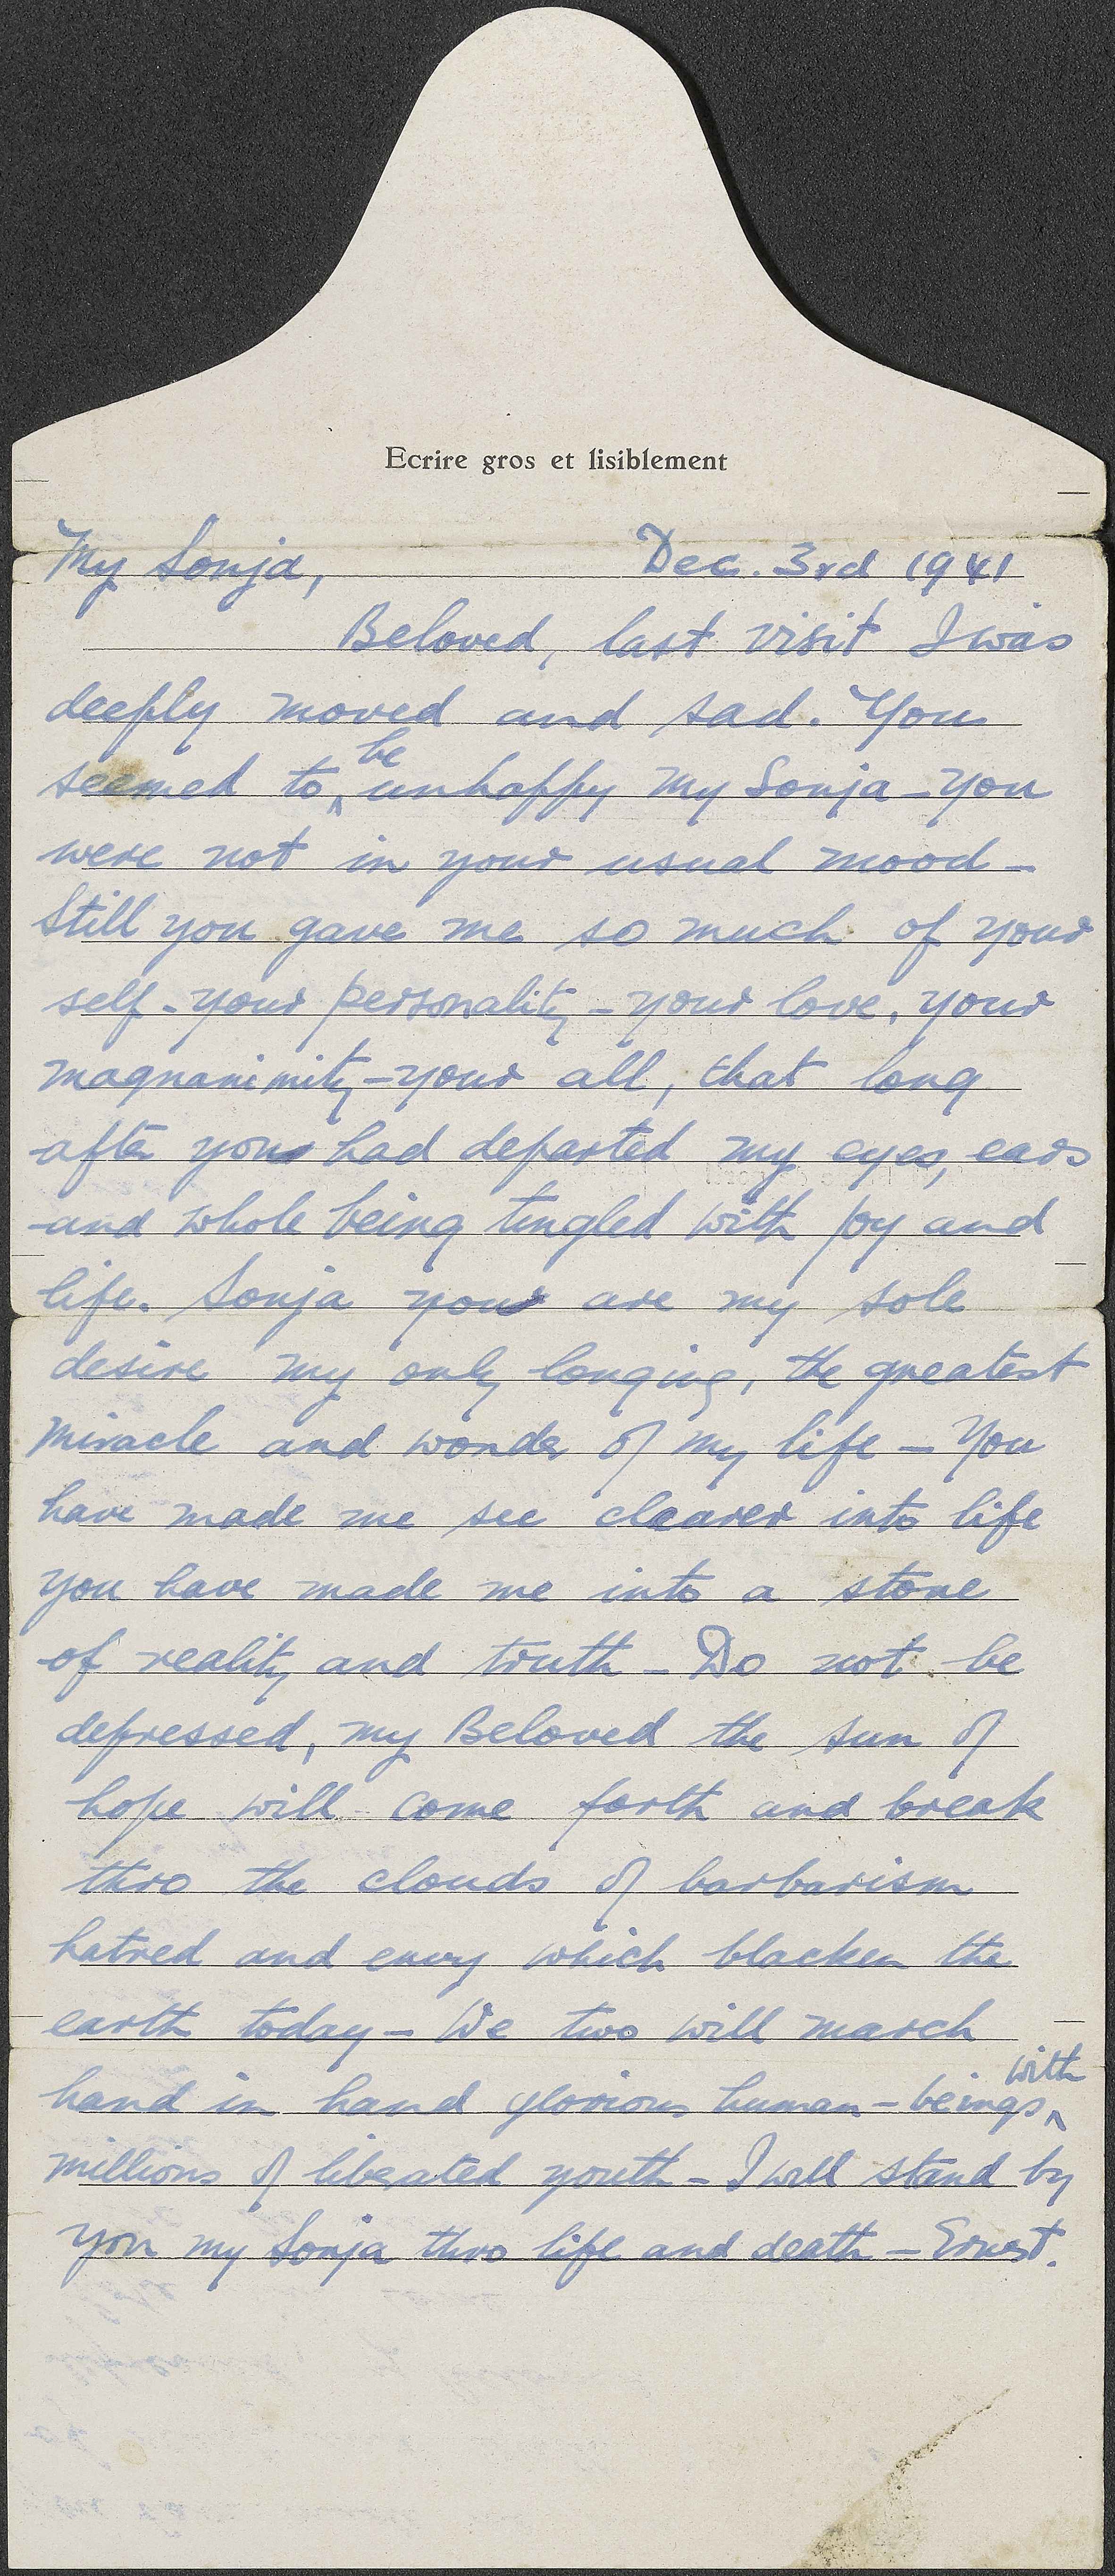 Ecrire gros et lisiblement
My Sonja, Dec. 3rd 1941
Beloved, last visit I was
deeply moved and sad. You
seemed to be unhappy my Sonja - you
were not in your usual mood -
Still you gave me so much of your
self - your personality - your love, your
magnanimity - your all, that long
after you had departed my eyes, ears
and whole being tingled with joy and
life. Sonja you are my sole
desire my only longing, the greatest
miracle and wonder of my life - You
have made me see clearer into life
you have made me into a stone
of reality and truth - Do not be
depressed, my Beloved the sun of
hope will come forth and break
thro the clouds of barbarism
hatred and envy which blacken the
earth today - We two will march
hand in hand glorious human-beings with
millions of liberated youth - I will stand by
you my Sonja thro life and death - Ernest.